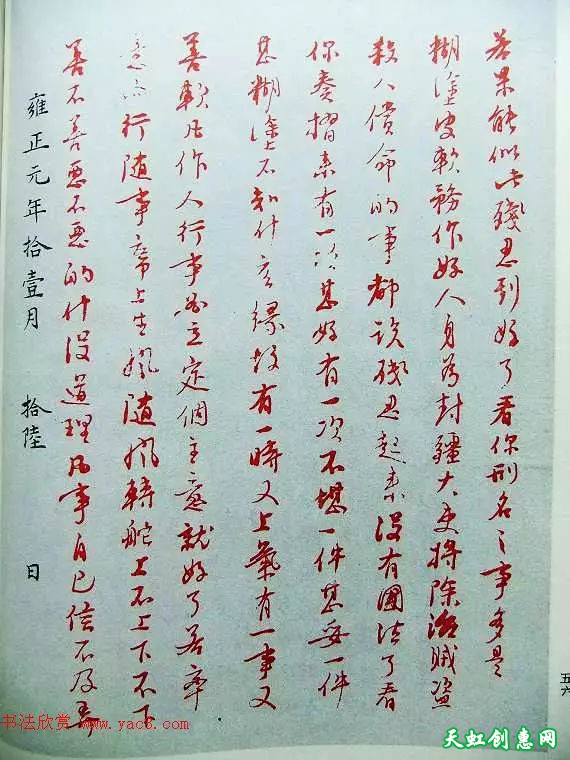 若果能似此残忍到好了看你刑名之事多是
糊塗皮軟務作好人身為封疆大吏将除治贼盗
殺人償命的事都談残忍起来没有國法了看
你奏摺来有一次甚好有一次不堪一件甚妥一件
甚糊塗不知什庅缘故有一時又上氣有一事又
善軟凡作人行事必立定個主意就好了若率
意行随事帶上生風随風轉舵上不上下不下
善不善惡不惡的什没道理凡事自己信不及
雍正元年拾壹月 拾陸 日
五六
书法欣赏 www.yac8.com
天虹创惠网